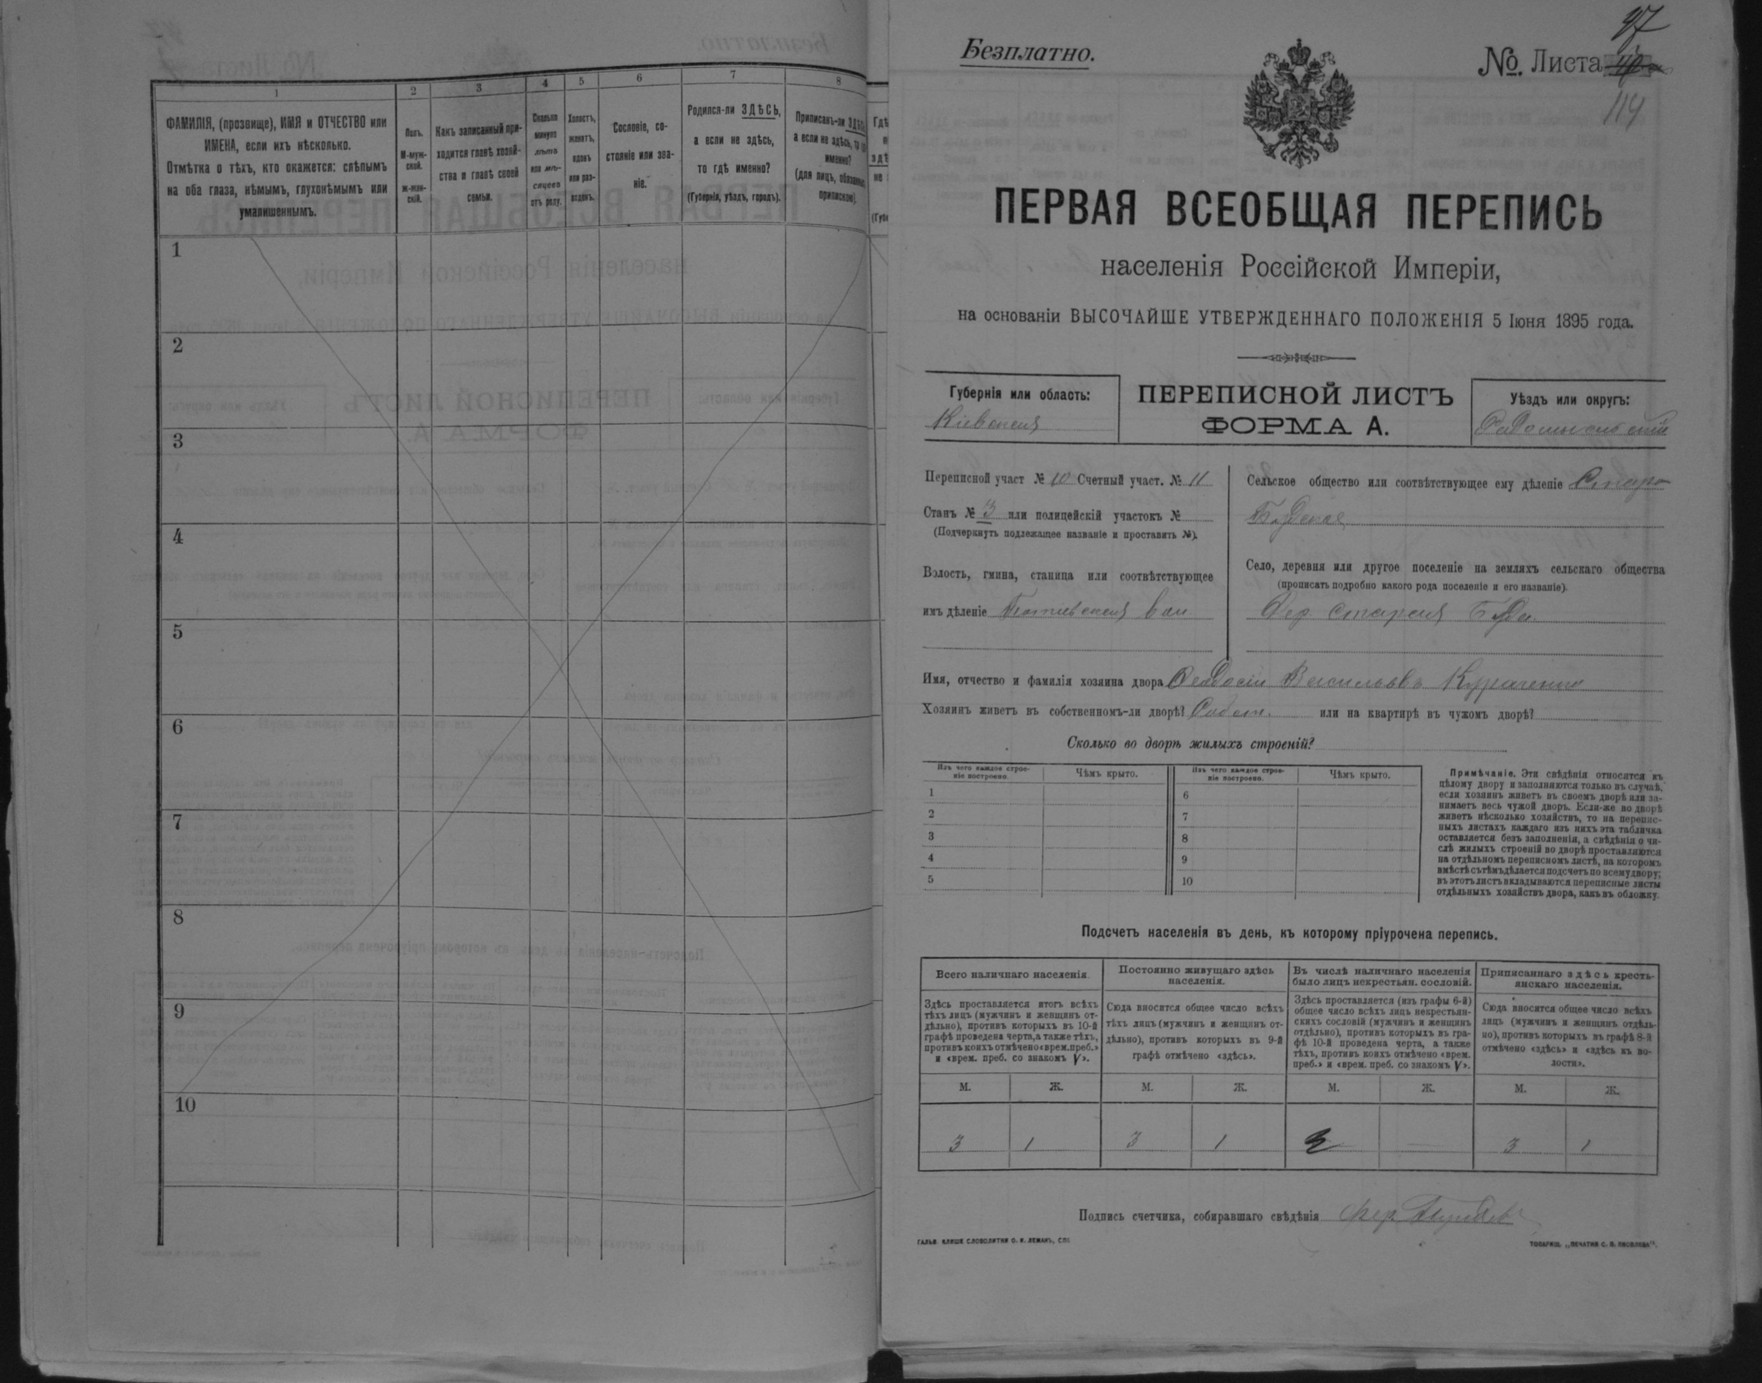 1
ФАМИЛІЯ, (прозвище), ИМЯ и ОТЧЕСТВО или
ИМЕНА, если ихъ нѣсколько.
Отмѣтка о тѣхъ, кто окажется: слѣпымъ
на оба глаза, нѣмымъ, глухонѣмымъ или
умалишеннымъ.
2
Полъ.
М-муж-
ской.
ж-жен-
скій.
3
Какъ записанный при-
ходится главѣ хозяй-
ства и главѣ своей
семьи.
4
Сколько
минуло
лѣтъ
или мѣ-
сяцевъ
отъ роду.
5
Холостъ,
женатъ,
вдовъ
или раз-
веденъ.
6
Сословіе, со-
стояніе или зва-
ніе.
7
Родился-ли ЗДѢСЬ,
а если не здѣсь,
то гдѣ именно?
(Губернія, уѣздъ, городъ).
8
Приписанъ-ли ЗДѢСЬ
а если не здѣсь, то гдѣ
именно?
(для лицъ, обязанныхъ
припискою).
1
2
3
4
5
6
7
8
9
10
Безплатно.
№. Листа
97
114
ПЕРВАЯ ВСЕОБЩАЯ ПЕРЕПИСЬ
населенія Россійской Имперіи,
на основаніи ВЫСОЧАЙШЕ УТВЕРЖДЕННАГО ПОЛОЖЕНІЯ 5 Іюня 1895 года.
Губернія или область:
Кіевская
ПЕРЕПИСНОЙ ЛИСТЪ
ФОРМА А.
Уѣздъ или округъ:
Радомысльскій
Переписной участ № 10 Счетный участ. № 11
Станъ № 3 или полицейскій участокъ №
(Подчеркнуть подлежащее названіе и проставить №).
Волость, гмина, станица или соотвѣтствующее
имъ дѣленіе вол
Сельское общество или соотвѣтствующее ему дѣленіе Старо
Будское
Село, деревня или другое поселеніе на земляхъ сельскаго общества
(прописать подробно какого рода поселеніе и его названіе).
Дер Старая Буда
Имя, отчество и фамилія хозяина двора Феодосій Васильевъ
Хозяинъ живетъ въ собственномъ-ли дворѣ? или на квартирѣ въ чужомъ дворѣ?
Сколько во дворѣ жилыхъ строеній?
Изъ чего каждое строе-
ніе построено.
Чѣмъ крыто.
Изъ чего каждое строе-
ніе построено.
Чѣмъ крыто.
1
2
3
4
5
6
7
8
9
10
Примѣчаніе. Эти свѣдѣнія относятся къ
цѣлому двору и заполняются только въ случаѣ,
если хозяинъ живетъ въ своемъ дворѣ или за-
нимаетъ весь чужой дворъ. Если-же во дворѣ
живетъ нѣсколько хозяйствъ, то на перепис-
ныхъ листахъ каждаго изъ нихъ эта табличка
оставляется безъ заполненія, а свѣдѣнія о чи-
слѣ жилыхъ строеній во дворѣ проставляются
на отдѣльномъ переписномъ листѣ, на которомъ
вмѣстѣ съ тѣмъ дѣлается подсчетъ по всему двору;
въ этотъ листъ вкладываются переписные листы
отдѣльныхъ хозяйствъ двора, какъ въ обложку.
Подсчетъ населенія въ день, къ которому пріурочена перепись.
Всего наличнаго населенія.
Здѣсь проставляется итогъ всѣхъ
тѣхъ лицъ (мужчинъ и женщинъ от-
дѣльно), противъ которыхъ въ 10-й
графѣ проведена черта, а также тѣхъ,
противъ коихъ отмѣчено «врем. преб.»
и «врем. преб. со знакомъ V».
Постоянно живущаго здѣсь
населенія.
Сюда вносится общее число всѣхъ
тѣхъ лицъ (мужчинъ и женщинъ от-
дѣльно), противъ которыхъ въ 9-й
графѣ отмѣчено «здѣсь».
Въ числѣ наличнаго населенія
было лицъ некрестьян. сословій.
Здѣсь проставляется (изъ графы 6-й)
общее число всѣхъ лицъ некрестьян-
скихъ сословій (мужчинъ и женщинъ
отдѣльно), противъ которыхъ въ гра-
фѣ 10-й проведена черта, а также
тѣхъ, противъ коихъ отмѣчено «врем.
преб.» и «врем. преб. со знакомъ V».
Приписаннаго здѣсь кресть-
янскаго населенія.
Сюда вносится общее число всѣхъ
лицъ (мужчинъ и женщинъ отдѣль-
но), противъ которыхъ въ графѣ 8-й
отмѣчено «здѣсь» и «здѣсь къ во-
лости».
М. Ж. М. Ж. М. Ж. М. Ж.
3 1 3 1 — 3 1
Подпись счетчика, собиравшаго свѣдѣнія
ГАЛЬВ. КЛИШЕ СЛОВОЛИТНИ О. И. ЛЕМАНЪ, СПБ.
ТОВАРИЩ. „ПЕЧАТНЯ С. П. ЯКОВЛЕВА“.